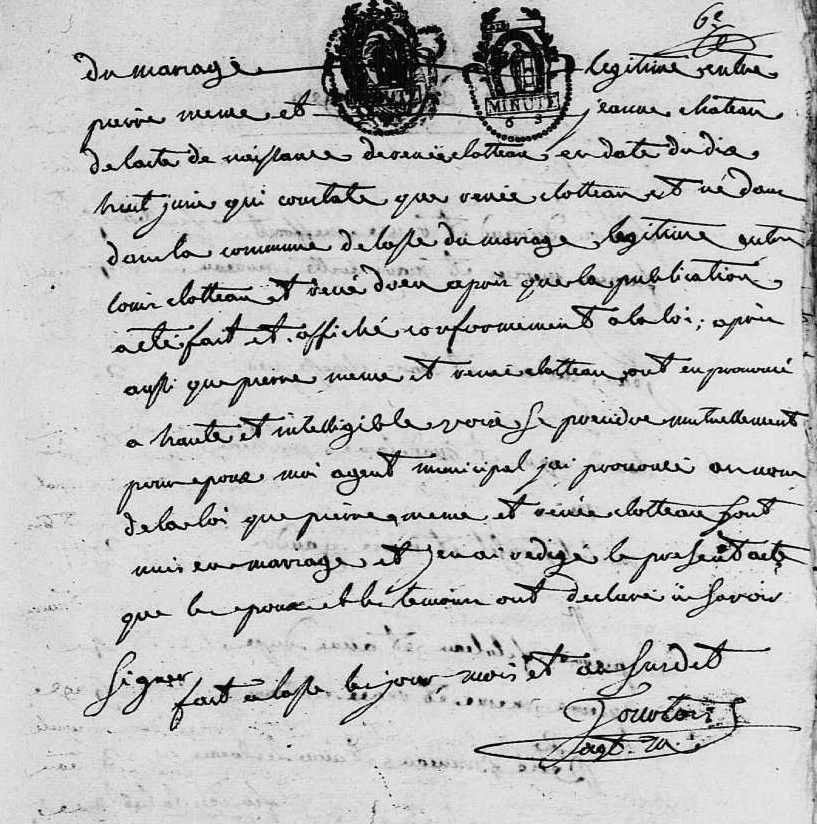 6e
MINUTE
MINUTE
63
du mariage legitime entre
pierre meme et jeanne chateau
de lacte de naissance de renée clotteau en date du dix
huit juin qui constate que renée clotteau est né dans
dans la commune de lasse du mariage legitime entre
louis clotteau et rené après que la publication
a eté fait et affiché conformement a la loi, après
aussi que pierre meme et renée clotteau ont eu prononcé
a haute et intelligible voix se prendre mutuellement
pour epoux moi agent municipal jai prononcé au nom
de la loi que pierre meme et renée clotteau sont
unis en mariage et jen ai redigé le present acte
que les epoux et les temoins ont declaré ne savoir
signer
fait a lasse les jour mois et an susdit
agt. m.